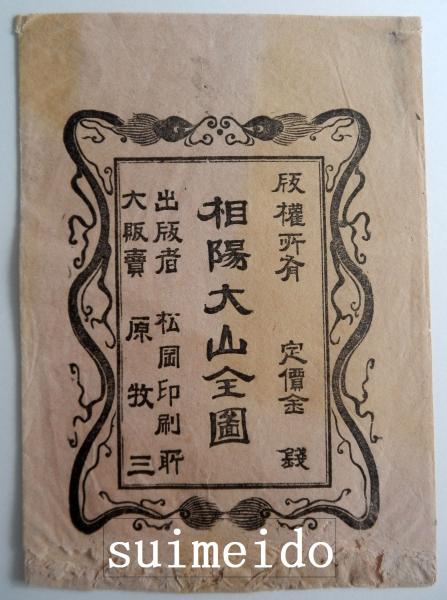 版權所有　定價金　錢
相陽大山全圖
出版者　松岡印刷所
大販賣　原牧三
suimeido